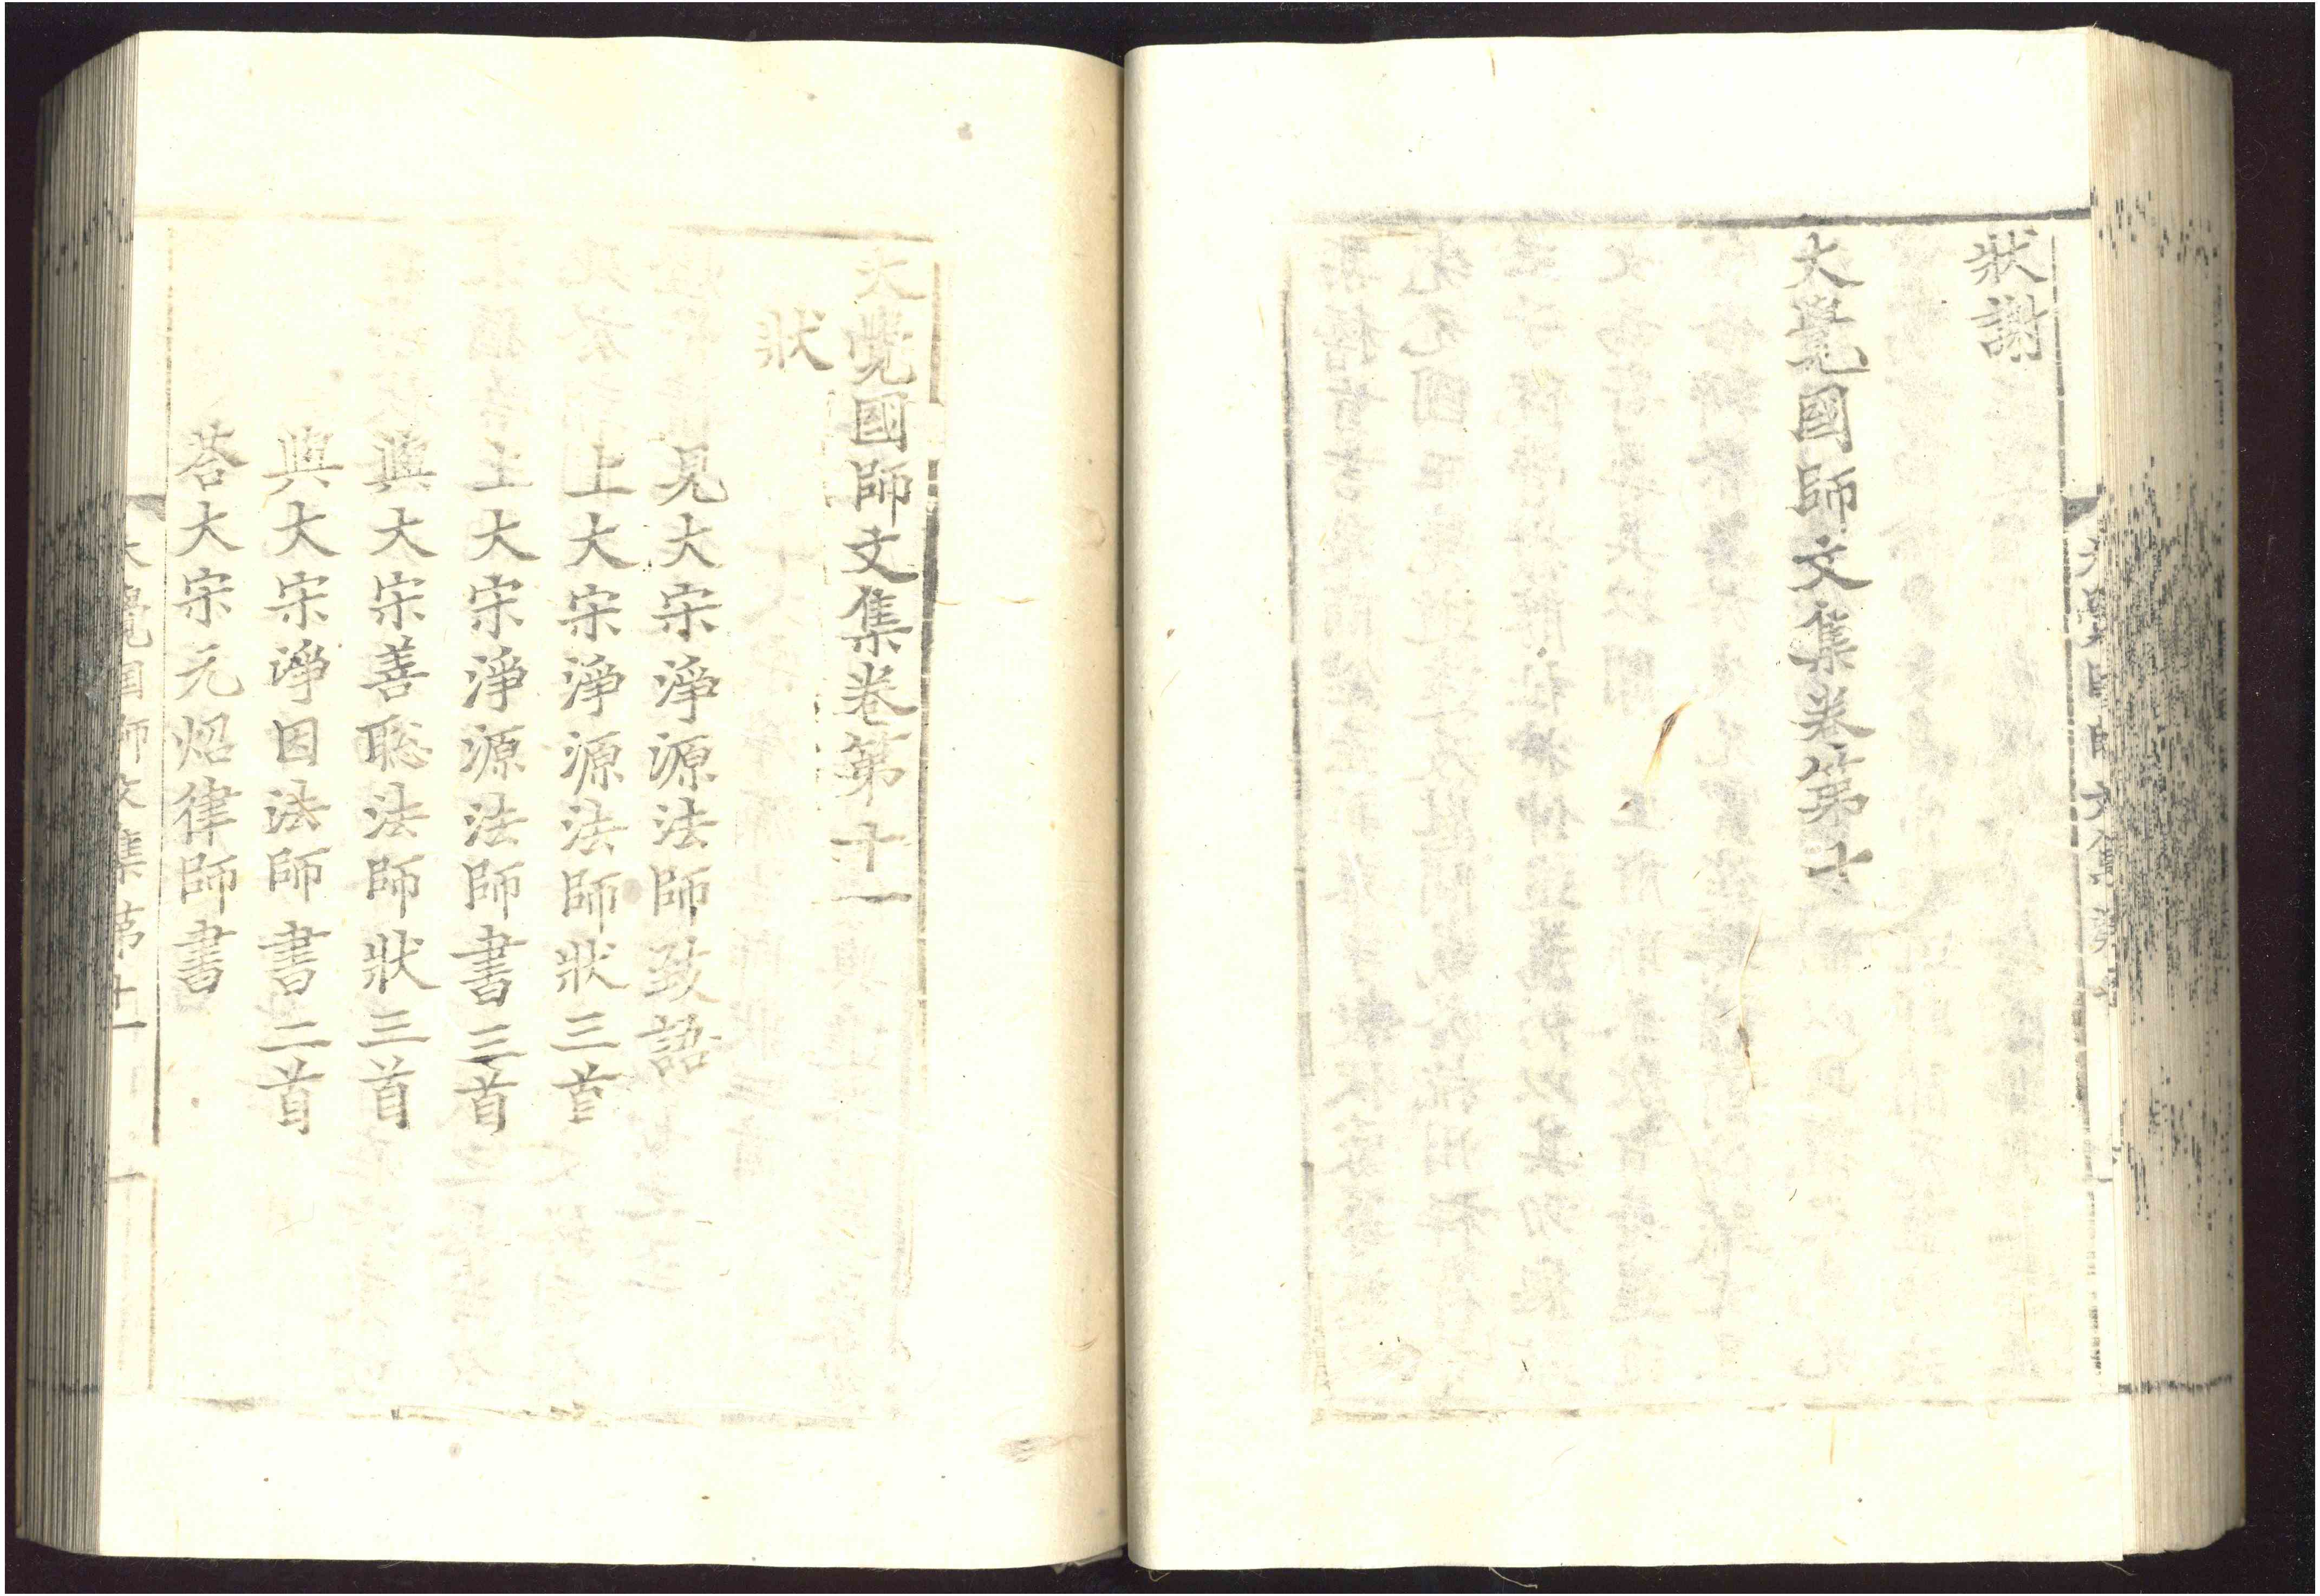 狀謝
大覺國師文集卷第十
大覺國師文集卷第十一
狀
見大宋淨源法師致語
上大宋淨源法師狀三首
上大宋淨源法師書三首
與大宋善聡法師狀三首
與大宋淨因法師書二首
荅大宋元炤律師書
大覺國師文集第十一